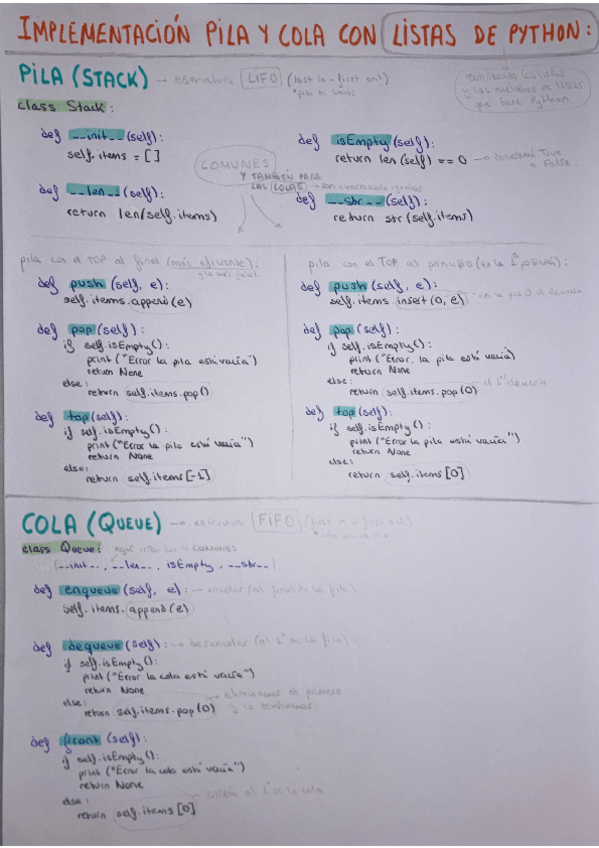 IMPLEMENTACIÓN PILA Y COLA CON LISTAS DE PYTHON:
PILA (STACK) → estructura LIFO (last in - first out)
*pila de libros
reutilizando las listas
y los métodos de listas
que tiene Python.
class Stack:
def __init__(self):
self.items = []
def isEmpty(self):
return len(self) == 0 → devolverá True
o False
COMUNES
Y TAMBIÉN PARA
LAS COLAS → son exactamente iguales
def __len__(self):
return len(self.items)
def __str__(self):
return str(self.items)
pila con el TOP al final (más eficiente):
def push (self, e):
self.items.append(e)
def pop(self):
if self.isEmpty():
print ("Error la pila está vacía")
return None
else:
return self.items.pop()
def top(self):
if self.isEmpty():
print ("Error la pila está vacía")
return None
else:
return self.items[-1]
pila con el TOP al principio (es la 1ª posición):
def push (self, e):
self.items.insert(0, e) → en la pos 0 el elemento
def pop (self):
if self.isEmpty():
print ("Error, la pila está vacía)
return None
else:
return self.items.pop(0) → el 1º elemento
def top(self):
if self.isEmpty():
print ("Error la pila está vacía")
return None
else:
return self.items [0]
COLA (QUEUE) → estructura FIFO (first in - first out)
class Queue: → aquí irían los 4 COMUNES
(__init__, __len__, isEmpty, __str__)
def enqueue (self, e): → encolar (al final de la fila)
self.items.append(e)
def dequeue (self): → desencolar (al 1º de la fila)
if self.isEmpty():
print ("Error la cola está vacía")
return None
else:
return self.items.pop(0) → eliminamos el primero
y lo devolvemos
def front (self):
if self.isEmpty():
print ("Error la cola está vacía")
return None
else:
return self.items [0]